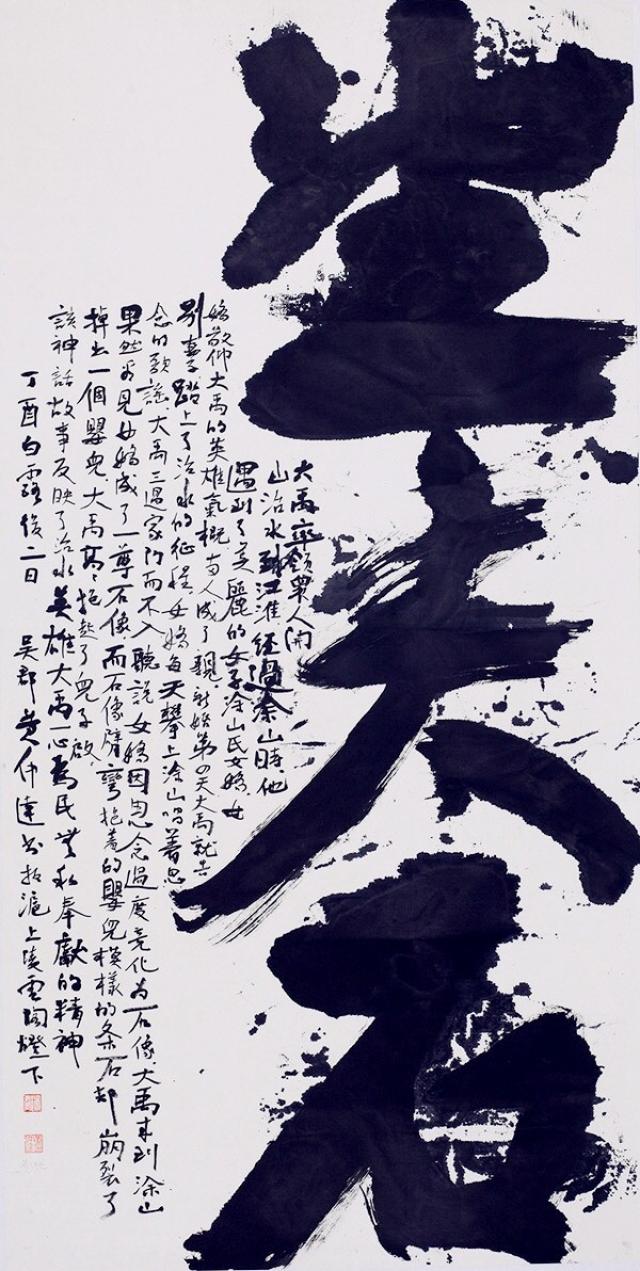 望夫石
大禹率領眾人開
山治水到江淮經過涂山時他
遇到了美麗的女子涂山氏女嬌女
嬌敬仰大禹的英雄氣概两人成了親新婚第四天大禹就告
别妻踏上了治水的征程女嬌每天攀上涂山唱着思
念的歌謡大禹三過家门而不入聽説女嬌因思念過度竟化为一石像大禹来到涂山
果然看見女嬌成了一尊石像而石像臂彎抱着的嬰兒模樣的条石却崩裂了
掉出一個嬰兒大禹高々抱起了兒子啟
該神話故事反映了治水英雄大禹一心爲民無私奉獻的精神
丁酉白露後二日 吴郡黄仲達书於滬上凌雲閣燈下